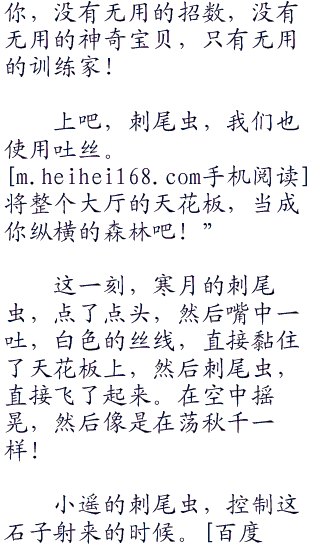 你，没有无用的招数，没有
无用的神奇宝贝，只有无用
的训练家！
上吧，刺尾虫，我们也
使用吐丝。
[m.heihei168.com手机阅读]
将整个大厅的天花板，当成
你纵横的森林吧！”
这一刻，寒月的刺尾
虫，点了点头，然后嘴中一
吐，白色的丝线，直接黏住
了天花板上，然后刺尾虫，
直接飞了起来。在空中摇
晃，然后像是在荡秋千一
样！
小遥的刺尾虫，控制这
石子射来的时候。[百度